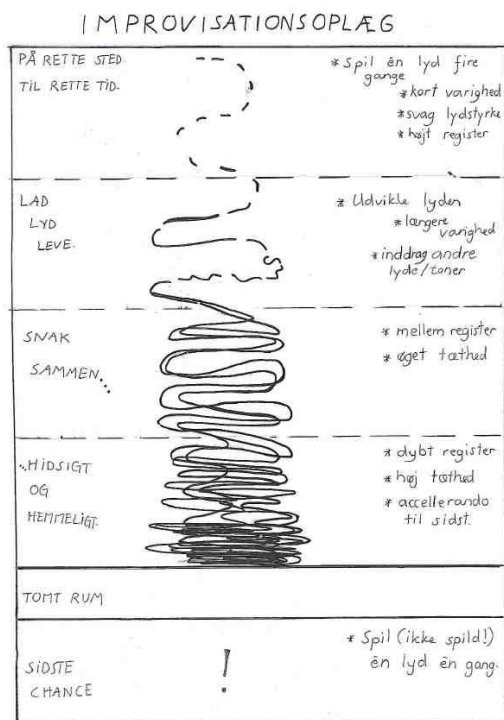 IMPROVISATIONSOPLÆG
PÅ RETTE STED
TIL RETTE TID.
* Spil èn lyd fire
gange
* kort varighed
* svag lydstyrke
* højt register
LAD
LYD
LEVE.
* Udvikle lyden
* længere
varighed
* inddrag andre
lyde/toner
SNAK
SAMMEN...
* mellem register
* øget tæthed
...HIDSIGT
OG
HEMMELIGT.
* dybt register
* høj tæthed
* accellerando
til sidst.
TOMT RUM
SIDSTE
CHANCE
!
* Spil (ikke spild!)
èn lyd èn gang.